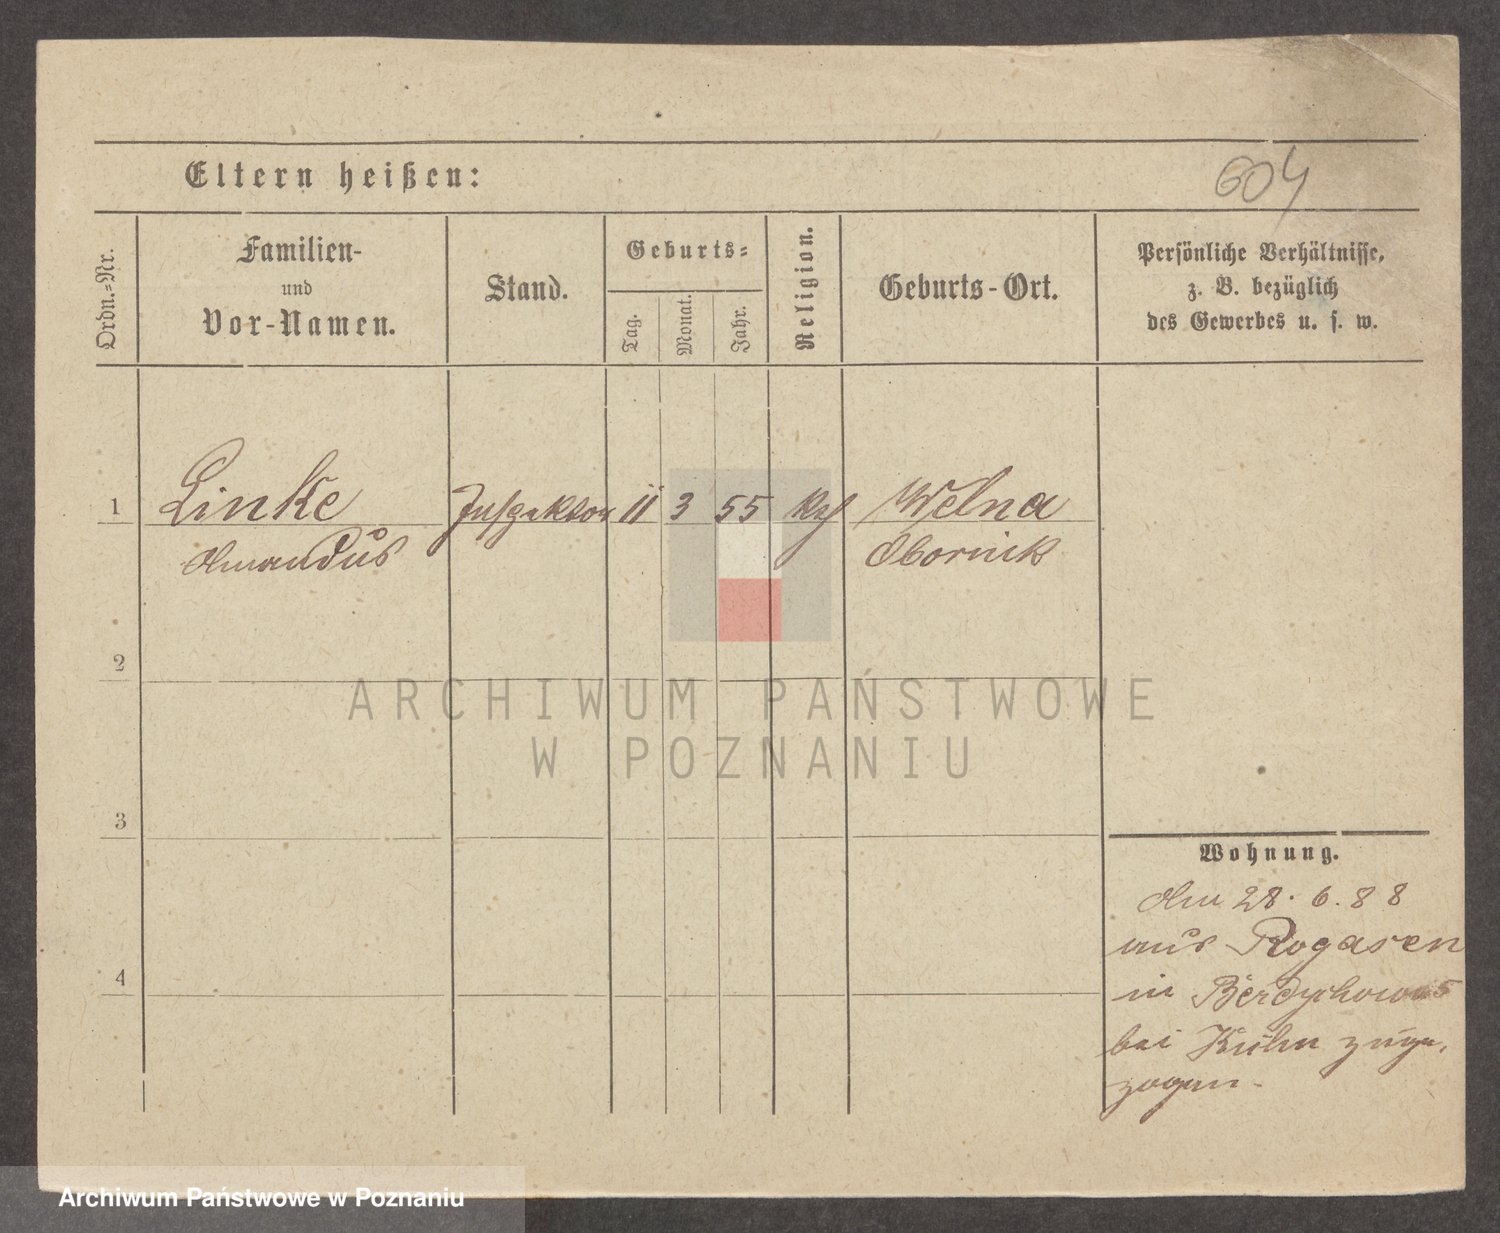 Eltern heißen:
604
Ordn.-Nr.
Familien-
und
Vor-Namen.
Stand.
Geburts-
Tag.
Monat.
Jahr.
Religion.
Geburts-Ort.
Persönliche Verhältnisse,
z. B. bezüglich
des Gewerbes u. s. w.
1 Linke Inspektor 11 3 55 Welna
Amandus Obornik
2
3
4
Wohnung.
Am 28. 6. 88
aus Rogasen
in Berdychowo 5
bei Kuhn zuge-
zogen.
ARCHIWUM PAŃSTWOWE
W POZNANIU
Archiwum Państwowe w Poznaniu